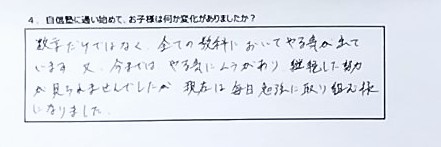 4. 自信塾に通い始めて、お子様は何か変化がありましたか？
数学だけではなく、全ての教科においてやる気が出て
います。又、今までは やる気にムラがあり、継続した努力
が見られませんでしたが 現在は毎日勉強に取り組む様
になりました。